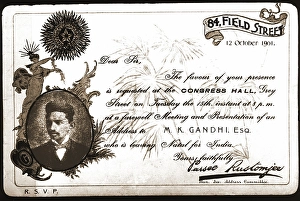 84, FIELD STREET
12 October 1901.
Dear Sir,
The favour of your presence
is requested at the CONGRESS HALL, Grey
Street on Tuesday the 15th. instant at 8 p.m.
at a farewell Meeting and Presentation of an
Address to M. K. GANDHI, ESQ.
who is leaving Natal for India.
Yours faithfully
Parsee Rustomjee
Hon. Sec. Address Committee.
R. S. V. P.